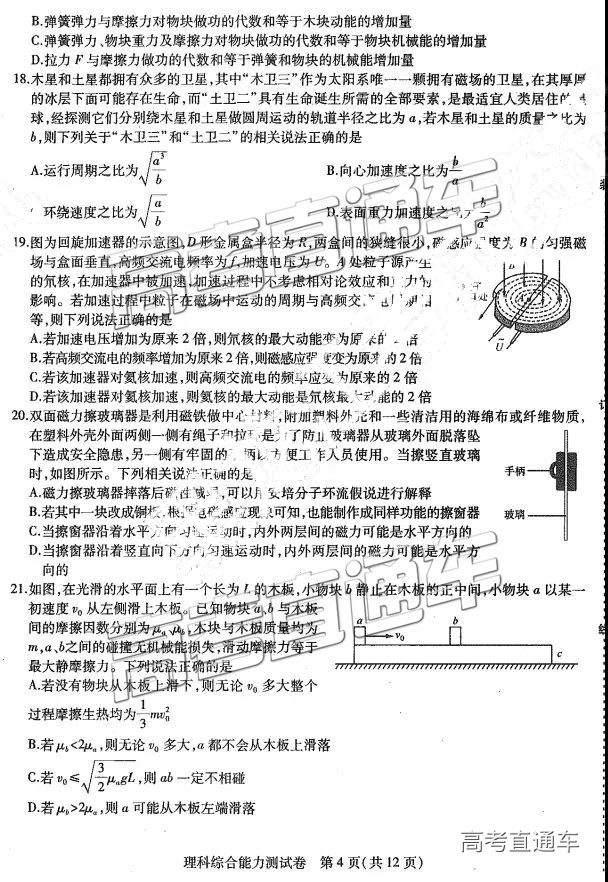 B.弹簧弹力与摩擦力对物块做功的代数和等于木块动能的增加量
C.弹簧弹力、物块重力及摩擦力对物块做功的代数和等于物块机械能的增加量
D.拉力 F 与摩擦力做功的代数和等于弹簧和物块的机械能的增加量
18.木星和土星都拥有众多的卫星,其中“木卫三”作为太阳系唯一一颗拥有磁场的卫星,在其厚厚
的冰层下面可能存在生命,而“土卫二”具有生命诞生所需的全部要素,是最适宜人类居住的
球,经探测它们分别绕木星和土星做圆周运动的轨道半径之比为 a,若木星和土星的质量之比为
b,则下列关于“木卫三”和“土卫二”的相关说法正确的是
A.运行周期之比为√(a³/b) B.向心加速度之比为 b/a
环绕速度之比为√(a/b) D.表面重力加速度之 b/a²
19.图为回旋加速器的示意图,D形金属盒半径为 R,两盒间的狭缝很小,磁感应强度为 B 的匀强磁
场与盒面垂直,高频交流电频率为 f,加速电压为 U。A 处粒子源产生
的氘核,在加速器中被加速,加速过程中不考虑相对论效应和重力的
影响。若加速过程中粒子在磁场中运动的周期与高频交流电周期相
等,则下列说法正确的是
A.若加速电压增加为原来 2 倍,则氘核的最大动能变为原来的 2 倍
B.若高频交流电的频率增加为原来 2 倍,则磁感应强度变为原来的 2 倍
C.若该加速器对氦核加速,则高频交流电的频率应变为原来的 2 倍
D.若该加速器对氦核加速,则氦核的最大动能是氘核最大动能的 2 倍
U
20.双面磁力擦玻璃器是利用磁铁做中心材料,附加塑料外壳和一些清洁用的海绵布或纤维物质,
在塑料外壳外面两侧一侧有绳子和拉环是为了防止玻璃器从玻璃外面脱落坠
下造成安全隐患,另一侧有牢固的手柄以方便工作人员使用。当擦竖直玻璃
时,如图所示。下列相关说法正确的是
A.磁力擦玻璃器摔落后磁性减弱,可以用安培分子环流假说进行解释
B.若其中一块改成铜板,根据电磁感应现象可知,也能制作成同样功能的擦窗器
C.当擦窗器沿着水平方向匀速运动时,内外两层间的磁力可能是水平方向的
D.当擦窗器沿着竖直向下方向匀速运动时,内外两层间的磁力可能是水平方
向的
手柄
玻璃
21.如图,在光滑的水平面上有一个长为 L 的木板,小物块 b 静止在木板的正中间,小物块 a 以某一
初速度 v₀ 从左侧滑上木板。已知物块 a、b 与木板
间的摩擦因数分别为 μₐ、μ_b,木块与木板质量均为
m,a、b之间的碰撞无机械能损失,滑动摩擦力等于
最大静摩擦力。下列说法正确的是
A.若没有物块从木板上滑下,则无论 v₀ 多大整个
过程摩擦生热均为 1/3 mv₀²
B.若 μ_b<2μₐ,则无论 v₀ 多大,a 都不会从木板上滑落
C.若 v₀≤√(3/2 μₐgL),则 ab 一定不相碰
D.若 μ_b>2μₐ,则 a 可能从木板左端滑落
a
b
v₀
c
理科综合能力测试卷 第 4 页(共 12 页)
高考直通车
高考直通车
高考直通车